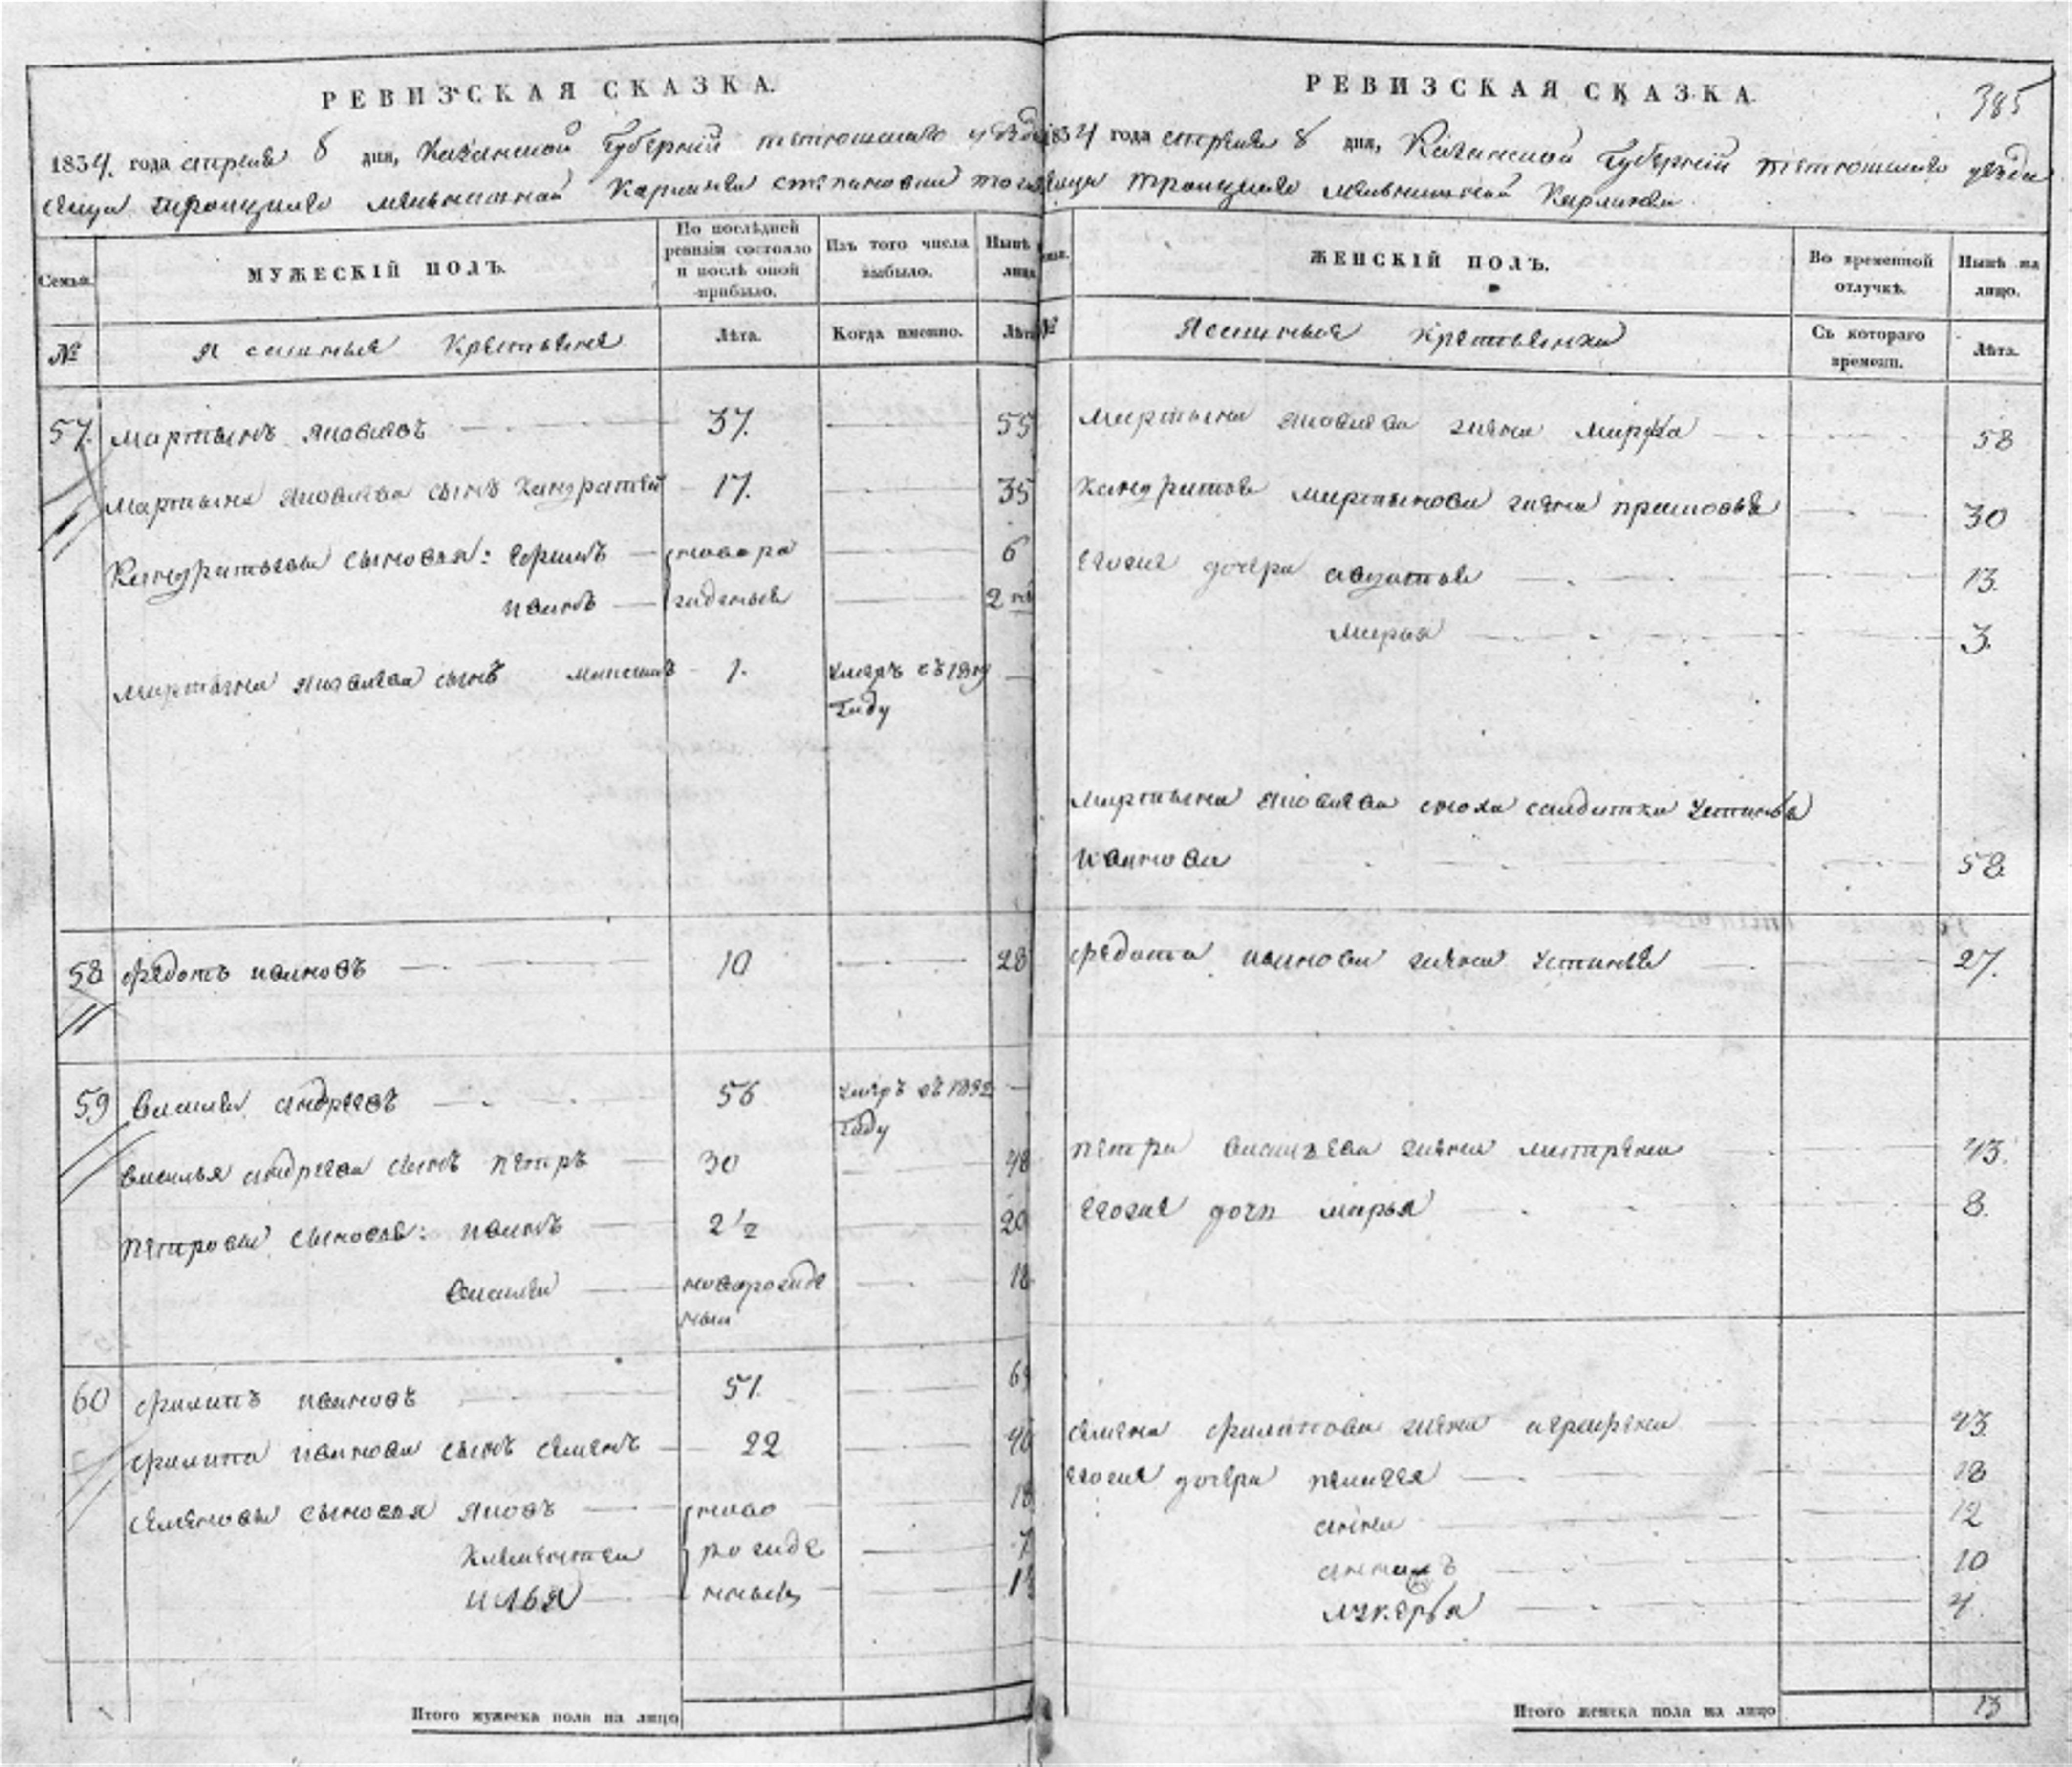 РЕВИЗСКАЯ СКАЗКА.
1834. года апреля 8 дня, Казанской губернии тетюшскаго уезда
Села троицкаго Карланги тожъ
Семьи.
МУЖЕСКІЙ ПОЛЪ.
По послѣдней ревизіи состояло и послѣ оной прибыло.
Изъ того числа выбыло.
Нынѣ лицо
№
Ясашныя Крестьяне
Лѣта.
Когда именно.
Лѣта
57. мартынъ яковлевъ 37. 55
мартына яковлева сынъ кандратей 17. 35
Кандратьевы сыновья: ефимъ новоро 6
иванъ жденые 2
мартына яковлева сынъ максимъ 1. умеръ въ 1819
году
58 федотъ ивановъ 10 28
59 василей андреевъ 56 умеръ въ 1832
году
василья андреева сынъ петръ 30 48
петровы сыновья: иванъ 2 1/2 20
василей новорожде 18
ный
60 филипъ ивановъ 51. 69
филипа иванова сынъ семенъ 22 40
семеновы сыновья яковъ ново 18
климентей рожде 7
илья нные
Итого мужеска пола на лицо
РЕВИЗСКАЯ СКАЗКА
385
1834 года апреля 8 дня, Казанской губернии тетюшскаго уезда
села троицкаго
№
ЖЕНСКІЙ ПОЛЪ.
Во временной отлучкѣ.
Нынѣ на лицо.
Ясашныя крестьянки
Съ котораго времени.
Лѣта.
мартына яковлева жена марфа 58
кандратья мартынова жена прасковья 30
ево же дочери авдотья 13.
марья 3.
мартына яковлева сноха салдатка устинья
иванова 58.
федота иванова жена устинья 27.
петра васильева жена матрена 43.
ево же дочь марья 8.
семена филипова жена аграфена 43.
ево же дочери пелагея 18
анна 12
10
лукерья 4.
Итого женска пола на лицо 13